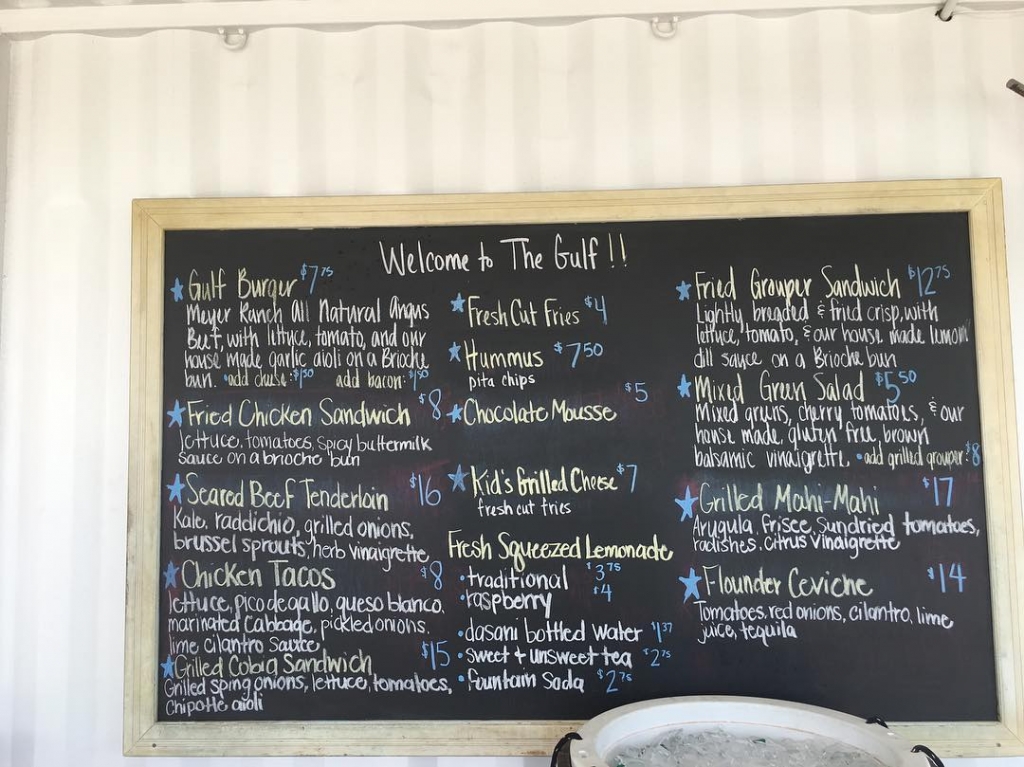 Welcome to The Gulf!!
Gulf Burger $7.75
Meyer Ranch All Natural Angus
Beef, with lettuce, tomato, and our
house made garlic aioli on a Brioche
bun. •add cheese: $1.50 add bacon: $1.50
Fried Chicken Sandwich $8
lettuce, tomatoes, spicy buttermilk
sauce on a brioche bun
Seared Beef Tenderloin $16
Kale, raddichio, grilled onions,
brussel sprouts, herb vinaigrette
Chicken Tacos $8
lettuce, pico de gallo, queso blanco,
marinated cabbage, pickled onions.
lime cilantro sauce
Grilled Cobia Sandwich $15
Grilled sping onions, lettuce, tomatoes,
Chipotle aioli
Fresh Cut Fries $4
Hummus $7.50
pita chips
Chocolate Mousse $5
Kid's Grilled Cheese $7
fresh cut fries
Fresh Squeezed Lemonade
•traditional $3.75
•raspberry $4
•dasani bottled water $1.37
•Sweet + Unsweet tea $2.75
•fountain Soda $2.75
Fried Grouper Sandwich $12.75
Lightly breaded & fried crisp, with
lettuce, tomato, & our house made lemon
dill sauce on a Brioche bun
Mixed Green Salad $5.50
Mixed greens, cherry tomatoes, & our
house made, gluten free, brown
balsamic vinaigrette. •add grilled grouper: $8
Grilled Mahi-Mahi $17
Arugula, frisee, Sundried tomatoes,
radishes, citrus vinaigrette
Flounder Ceviche $14
Tomatoes, red onions, cilantro, lime
juice, tequila